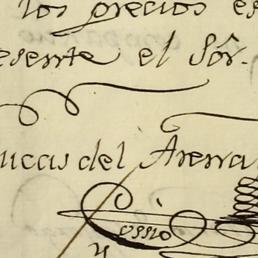 los precios es
esente el Sôr.
ucas del Arena
Cossio
y